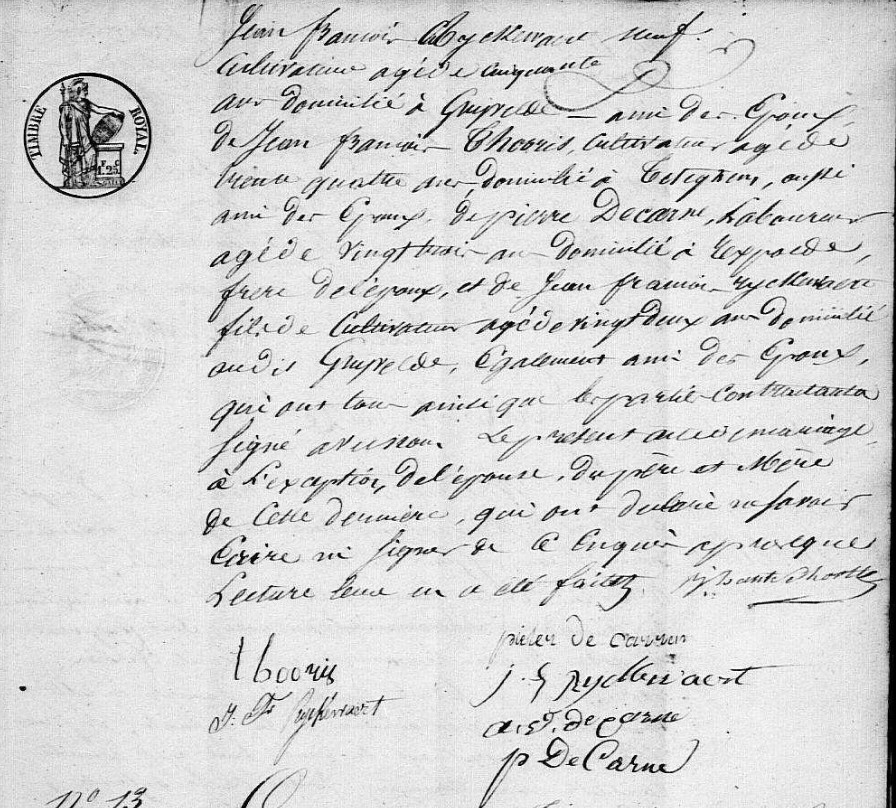 Jean françois Ryckewaert neuf.
Cultivateur agé de cinquante
ans domicilié à Ghyvelde – ami des Epoux,
de Jean françois Thooris, cultivateur agé de
trente quattre ans, domicilié à Teteghem, aussi
ami des Epoux, de pierre Decarne, Laboureur
agé de vingt trois ans domicilié à Rexpoede,
frere de l'époux, et de Jean françois Ryckewaert
fils de Cultivateur agé de vingt deux ans domicilié
au dit Ghyvelde, Egalement ami des Epoux,
qui ont tous ainsi que les parties contractantes
signé avec nous Le present acte de mariage,
à L'exception de l'épouse, du père et Mère
de Cette dernière, qui ont declaré ne savoir
Ecrire ni signer de Ce Enquis aprés que
Lecture leur en a été faite.
TIMBRE ROYAL
1 F. 25 C.
thooris
pieter de carne
J. F. Ryckewaert
j. f. Ryckewaert
de carne
p DeCarne
N° 13